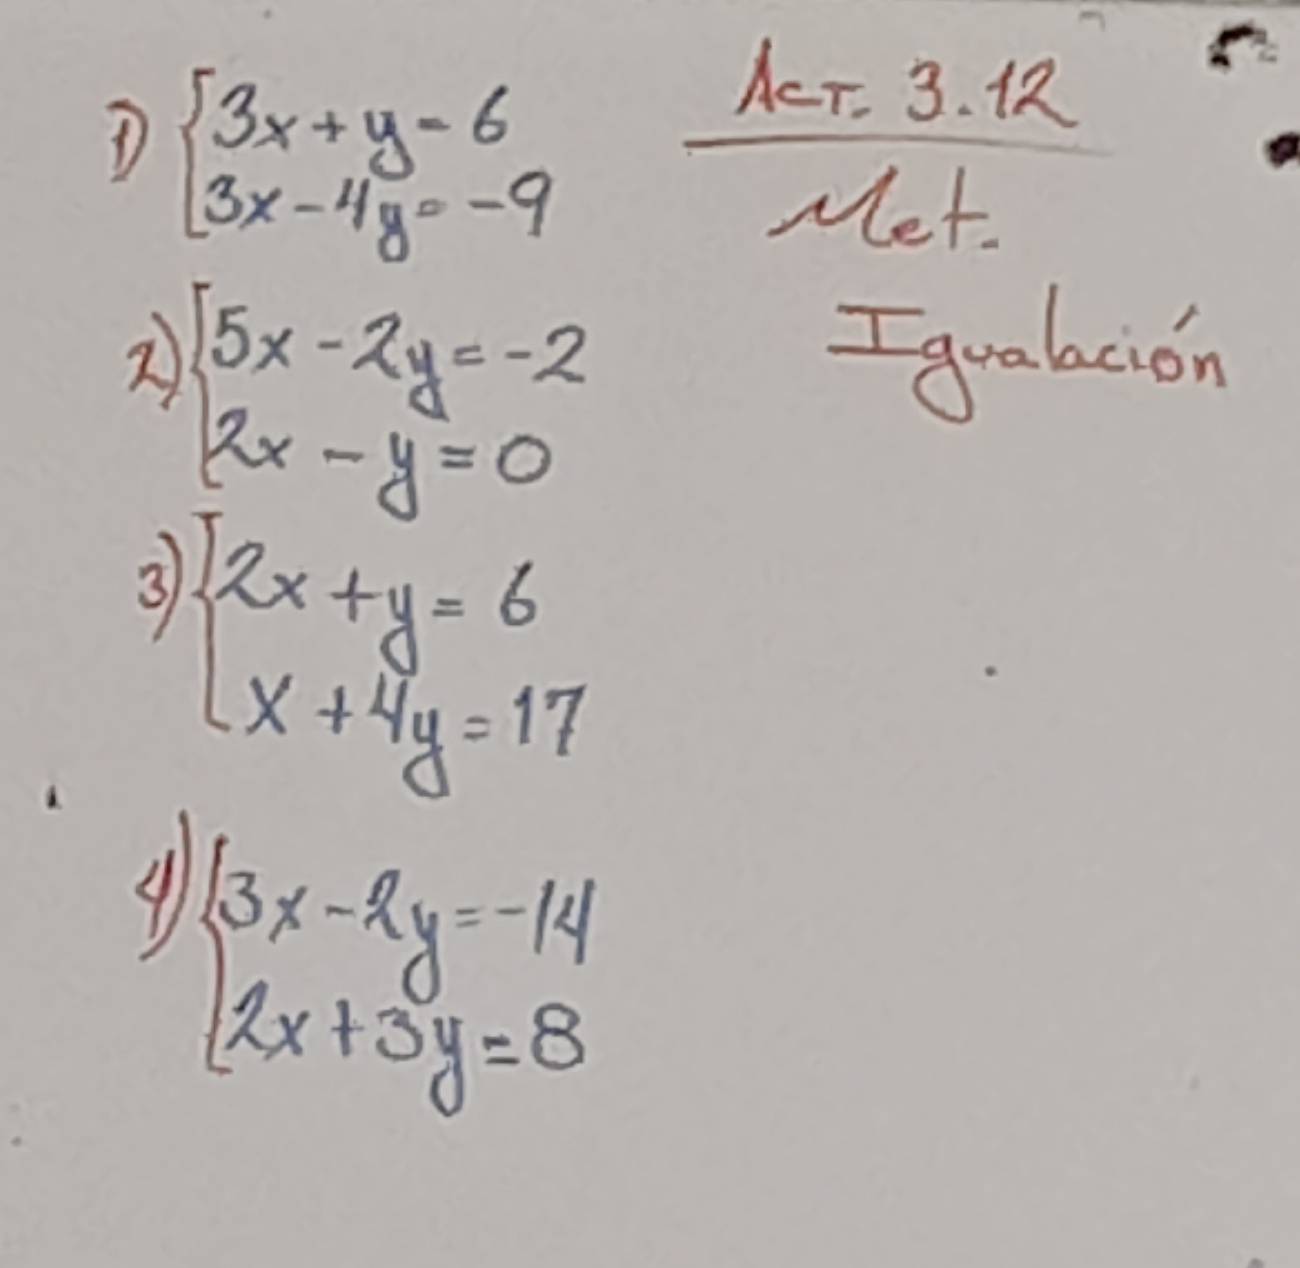 Act. 3.12
Met.
Igualación
1) 3x + y = 6
3x - 4y = -9
2) 5x - 2y = -2
2x - y = 0
3) 2x + y = 6
x + 4y = 17
4) 3x - 2y = -14
2x + 3y = 8